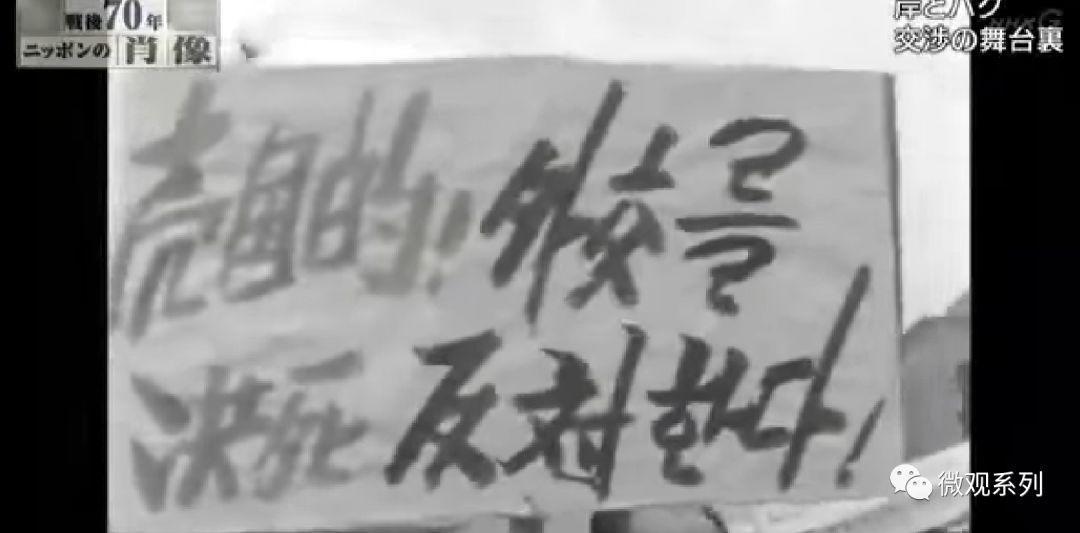 戦後70年
ニッポンの肖像
岸とパク
交渉の舞台裏
NHK G
売国的! 外交를
決死 反対한다!
微观系列